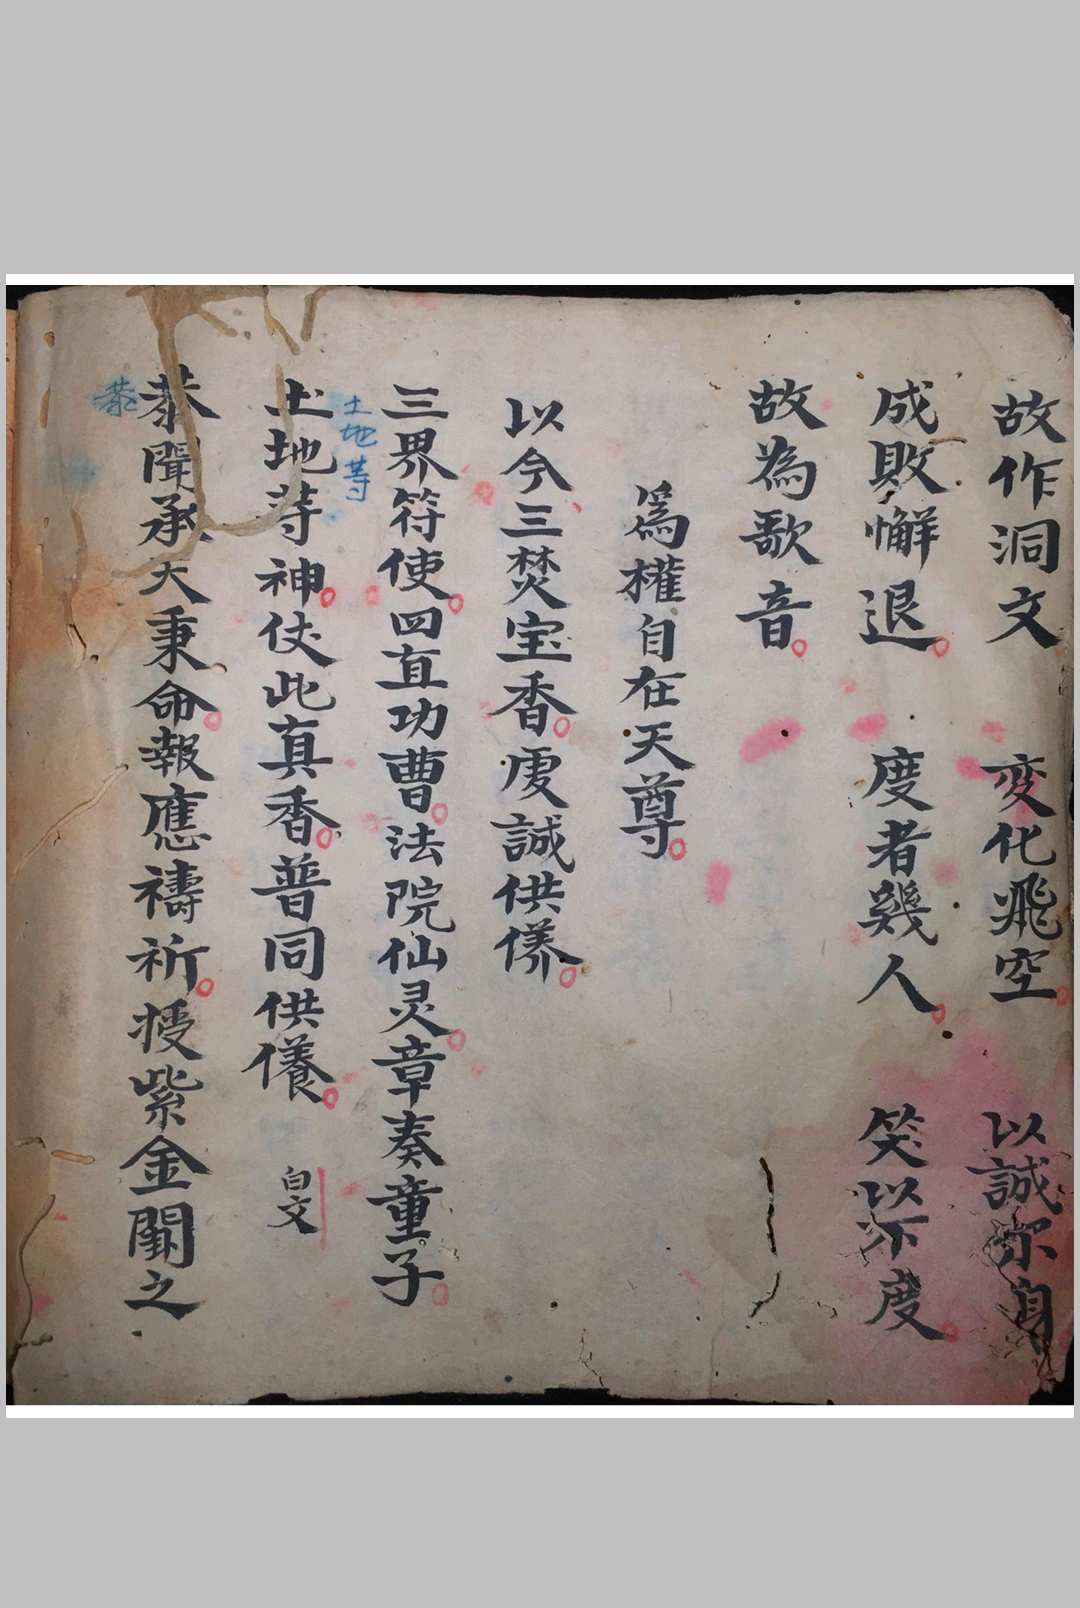 故作洞文 变化飛空 以誠 身
成敗懈退 度者幾人 笑以不度
故為歌音
爲權自在天尊
以今三焚宝香虔誠供儀
三界符使四直功曹法院仙灵章奏童子
土地等
土地等神仗此真香普同供儀 白文
恭
恭聞承大秉命報應禱祈授紫金闕之